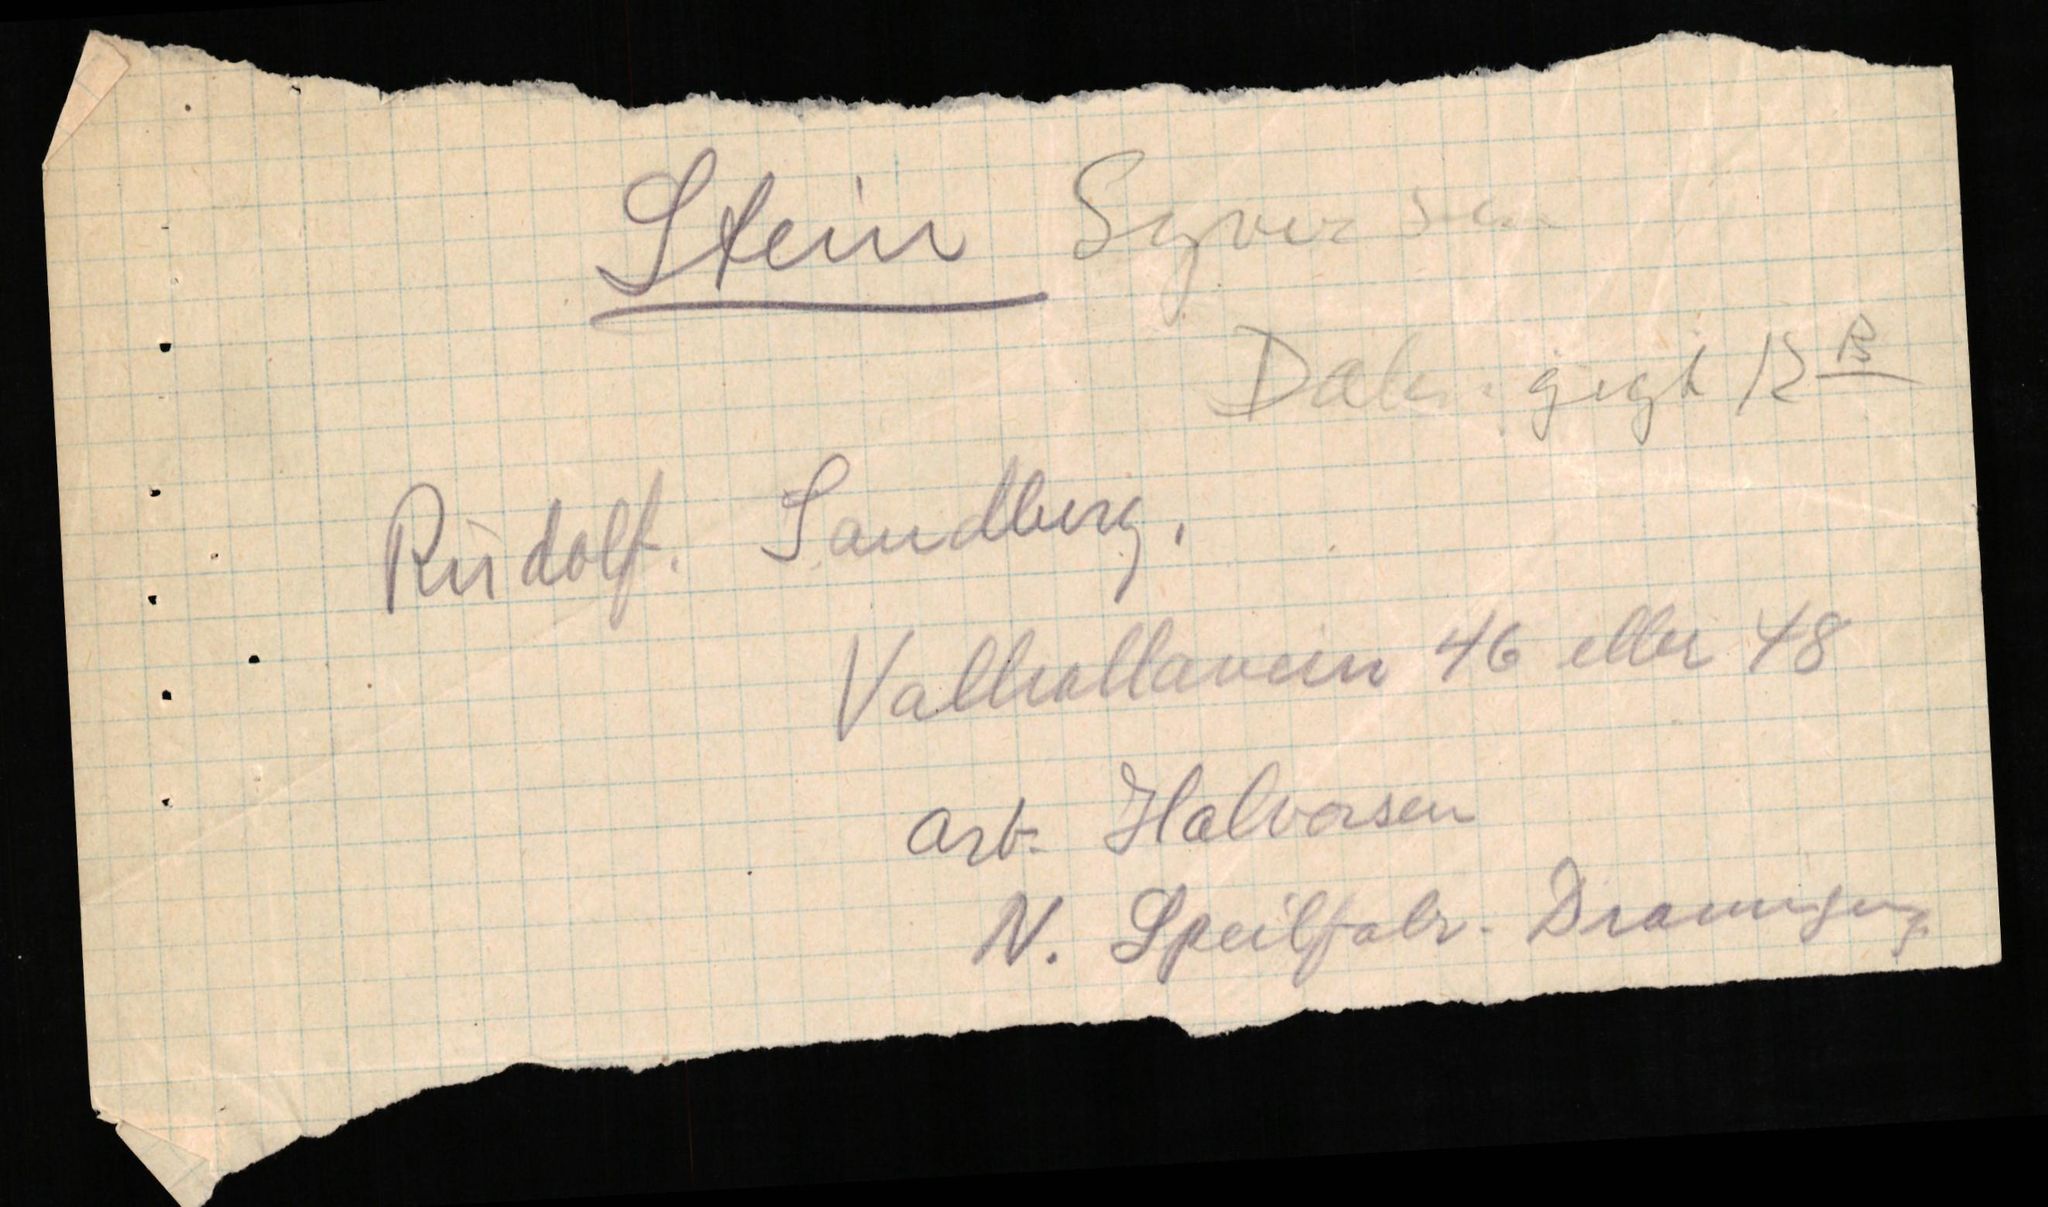 Stein Syversen
Dals. gigt 12 B
Rudolf. Sandberg.
Valhallaveien 46 eller 48
arb. Halvorsen
N. Speilfabr.